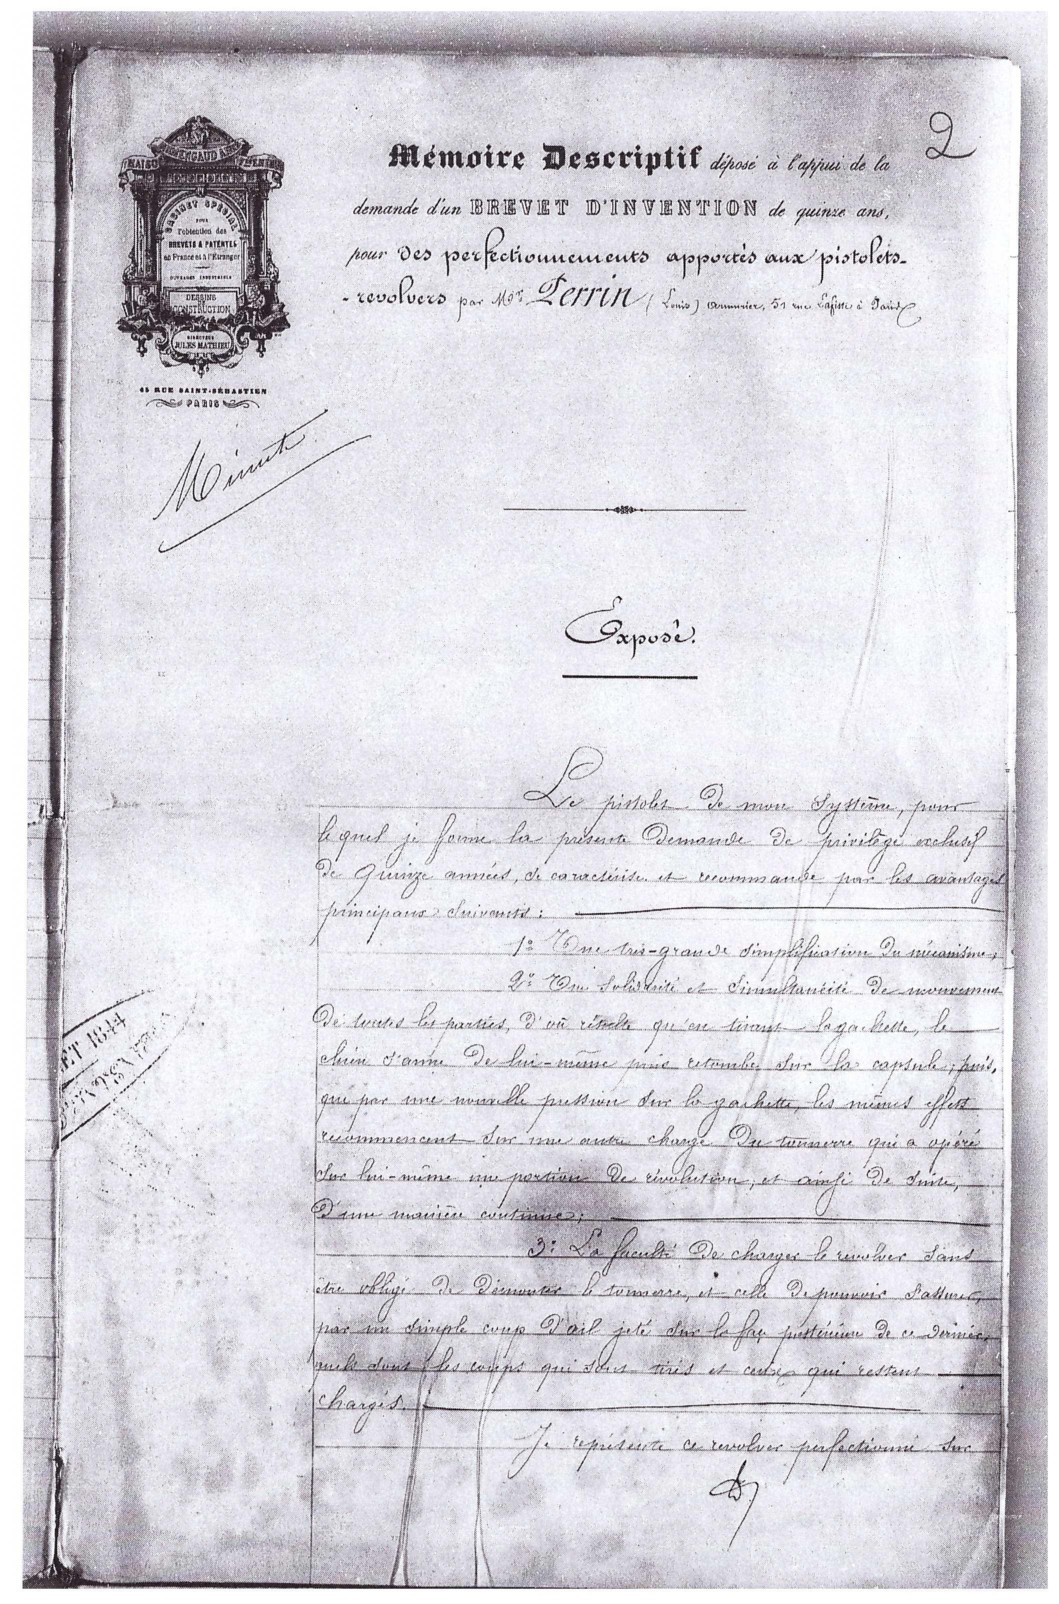 2
MAISON ARMENGAUD AINÉ
CABINET SPÉCIAL
POUR
l'obtention des
BREVETS & PATENTES
en France et à l'Étranger
OUVRAGES INDUSTRIELS
DESSINS
DE
CONSTRUCTION
DIRECTEUR
JULES MATHIEU
45 RUE SAINT-SÉBASTIEN
PARIS
Mémoire Descriptif déposé à l'appui de la
demande d'un BREVET D'INVENTION de quinze ans,
pour des perfectionnements apportés aux pistolets-
-revolvers par Mgr Perrin (Louis) armurier, 51 rue Lafitte à Paris
Minute
Exposé.
Le pistolet de mon système, pour
lequel je forme la présente demande de privilège exclusif
de quinze années, se caractérise et recommande par les avantages
principaux suivants :
1º Une très-grande simplification du mécanisme,
2º Une solidarité et simultanéité de mouvement
de toutes les parties, d'où résulte qu'en tirant la gachette, le
chien s'arme de lui-même puis retombe sur la capsule ; puis,
que par une nouvelle pression sur la gachette, les mêmes effets
recommencent sur une autre charge du tonnerre qui a opéré
sur lui-même une portion de révolution, et ainsi de suite,
d'une manière continue ;
3º La faculté de charger le revolver sans
être obligé de démonter le tonnerre, et celle de pouvoir s'assurer,
par un simple coup d'œil jeté sur la face postérieure de ce dernier,
quels sont les coups qui sont tirés et ceux qui restent
chargés.
Je représente ce revolver perfectionné sur
1844